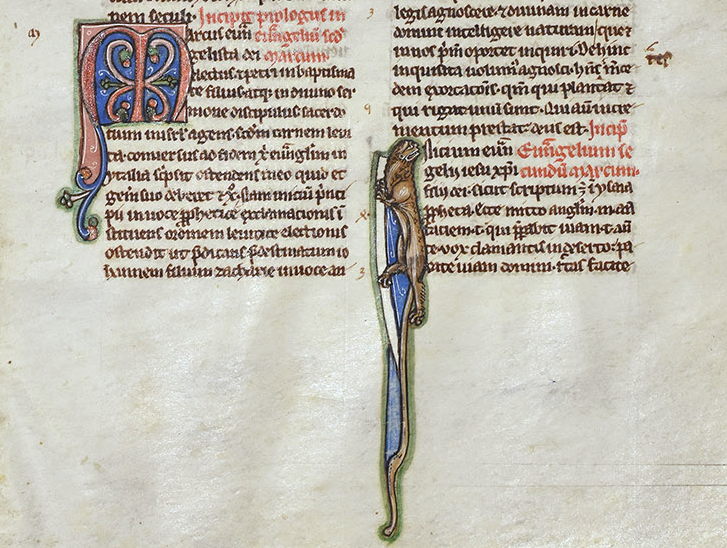 nem seculi. Incipit prologus in
M arcus euãn euãgelium scd
gelista dei Marcum
electus. & petri in baptisma
te filius. atq; in diuino ser
mone discipulus. sacerdo
tium in isrl' agens. scd̃m carnem leui
ta. conuersus ad fidem xp̃i euãglm in
ytalia scripsit ostendens in eo quid et
generi suo deberet & xp̃o. Nam initium p̃nci
pii in uoce p̃phetice exclamationis ĩ
stituens ordinem leuitice electionis
ostendit ut p̃dicans p̃destinatum io
hannem filium zacharie in uoce an
legis agnoscere. & diuinam in carne
domini intelligere naturam. que
in nos p̃m oportet inquiri. dehinc
inquisita uolumus agnosci. hñs m̃ce
dem exortationis. qm̃ qui plantat &
qui rigat unum sunt. Qui aũt incre
mentum prestat deus est. Incip̃
Inicium euãn Euãngelium se
gelii iesu xp̃i cundũ Marcum.
filii dei. sicut scriptum ẽ in ysaia
p̃pheta. Ecce mitto anglm meum an̄
faciem tuam qui p̃parabit uiam tuam añ
te. uox clamantis in deserto. pa
rate uiam domini. rectas facite